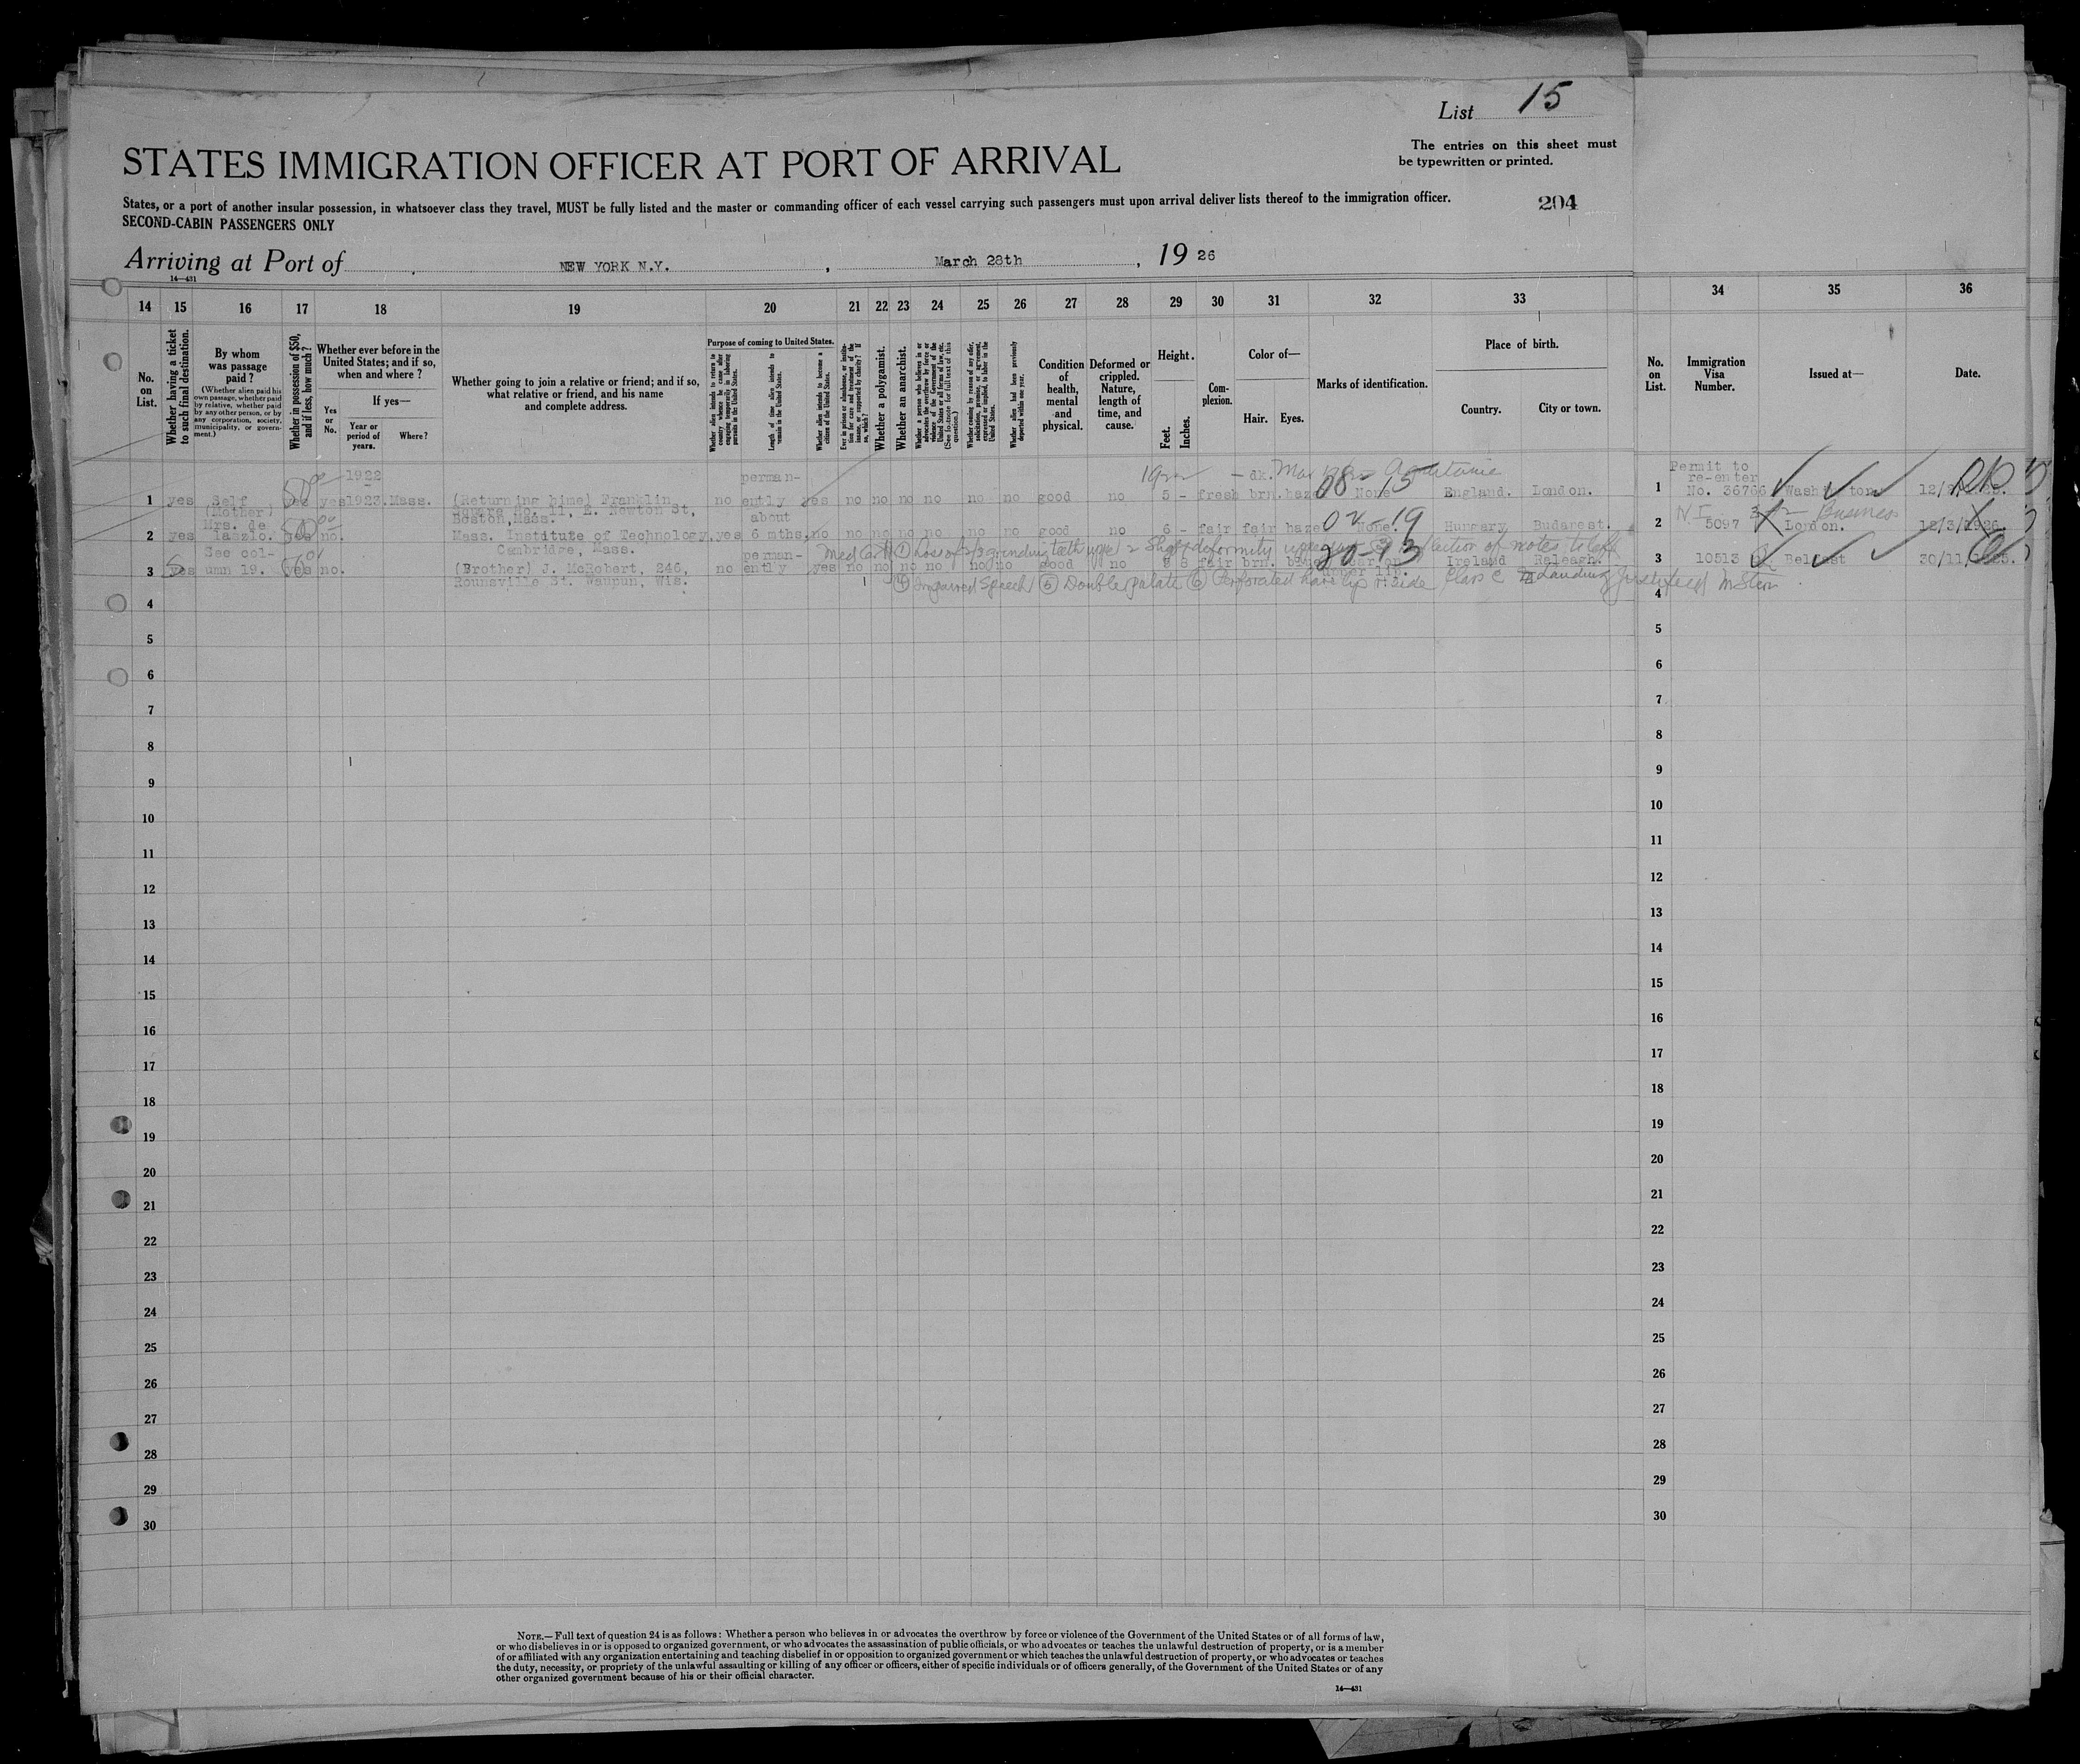 List 15
The entries on this sheet must
be typewritten or printed.
STATES IMMIGRATION OFFICER AT PORT OF ARRIVAL
States, or a port of another insular possession, in whatsoever class they travel, MUST be fully listed and the master or commanding officer of each vessel carrying such passengers must upon arrival deliver lists thereof to the immigration officer.
204
SECOND-CABIN PASSENGERS ONLY
Arriving at Port of NEW YORK N.Y. , March 28th , 19 26
14—431
14 15 16 17 18 19 20 21 22 23 24 25 26 27 28 29 30 31 32 33 34 35 36
No. on List.
Whether having a ticket to such final destination.
By whom was passage paid?
(Whether alien paid his own passage, whether paid by relative, whether paid by any other person, or by any corporation, society, municipality, or government.)
Whether in possession of $50, and if less, how much?
Whether ever before in the United States; and if so, when and where?
Yes or No.
If yes—
Year or period of years.
Where?
Whether going to join a relative or friend; and if so, what relative or friend, and his name and complete address.
Purpose of coming to United States.
Whether alien intends to return to country whence he came after engaging temporarily in laboring pursuits in the United States.
Length of time alien intends to remain in the United States.
Whether alien intends to become a citizen of the United States.
Ever in prison or almshouse, or institution for care and treatment of the insane, or supported by charity? If so, which?
Whether a polygamist.
Whether an anarchist.
Whether a person who believes in or advocates the overthrow by force or violence of the Government of the United States or all forms of law, etc. (See footnote for full text of this question.)
Whether coming by reason of any offer, solicitation, promise, or agreement, expressed or implied, to labor in the United States.
Whether alien had been previously deported within one year.
Condition of health, mental and physical.
Deformed or crippled. Nature, length of time, and cause.
Height.
Feet. Inches.
Complexion.
Color of—
Hair. Eyes.
Marks of identification.
Place of birth.
Country. City or town.
No. on List.
Immigration Visa Number.
Issued at—
Date.
1922 perman- Permit to
re-enter
1 yes Self 50 yes yes 1923. Mass. (Returning hime) Franklin no ently yes no no no no no no good no 5 - fresh brn. haze 08-15 None England. London. 1 No. 36766 Wash ton
(Mother) Square No. 11, E. Newton St,
Mrs. de Boston, Mass. about
2 yes laszlo. 50 yes no. Mass. Institute of Technology, yes 6 mths, no no no no no no no good no 6 - fair fair haze 02-19 None. Hungary Budapest. 2 5097 London. 12/3/1926. Business
See col- Cambridge, Mass. perman-
3 yes umn 19. yes no. (Brother) J. McRobert, 246, no ently yes no no no no no no good no 5 8 fair brn. 20-33 Ireland Raleagh. 3 10513 Belfast 30/11/
Rounsville St. Waupun, Wis.
Impaired Speech ⑤ Double palate ⑥ Perforated hare lip Class C Landing justified M Stern
4 4
5 5
6 6
7 7
8 8
9 9
10 10
11 11
12 12
13 13
14 14
15 15
16 16
17 17
18 18
19 19
20 20
21 21
22 22
23 23
24 24
25 25
26 26
27 27
28 28
29 29
30 30
NOTE.—Full text of question 24 is as follows: Whether a person who believes in or advocates the overthrow by force or violence of the Government of the United States or of all forms of law,
or who disbelieves in or is opposed to organized government, or who advocates the assassination of public officials, or who advocates or teaches the unlawful destruction of property, or is a member
of or affiliated with any organization entertaining and teaching disbelief in or opposition to organized government or which teaches the unlawful destruction of property, or who advocates or teaches
the duty, necessity, or propriety of the unlawful assaulting or killing of any officer or officers, either of specific individuals or of officers generally, of the Government of the United States or of any
other organized government because of his or their official character.
14—431